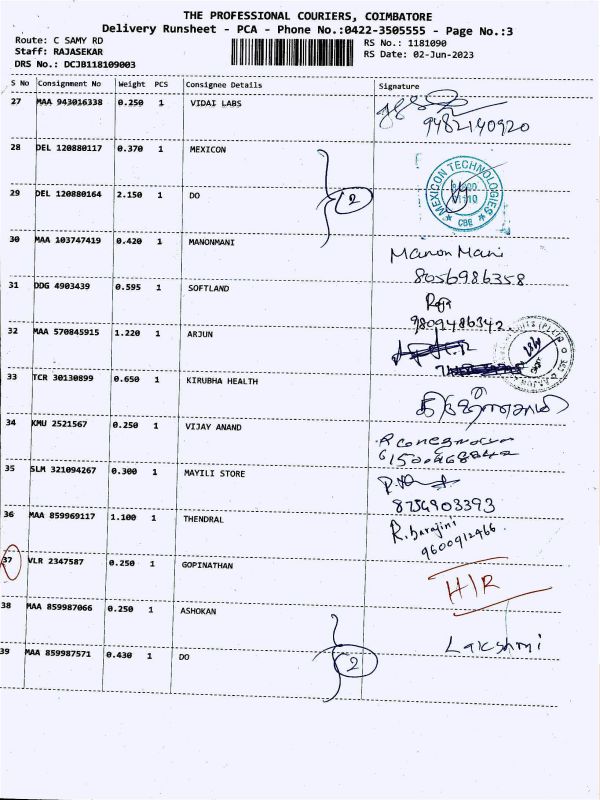 THE PROFESSIONAL COURIERS, COIMBATORE
Delivery Runsheet - PCA - Phone No.:0422-3505555 - Page No.:3
Route: C SAMY RD
RS No.: 1181090
Staff: RAJASEKAR
RS Date: 02-Jun-2023
DRS No.: DCJB118109003
S No Consignment No Weight PCS Consignee Details Signature
27 MAA 943016338 0.250 1 VIDAI LABS
9482140920
28 DEL 120880117 0.370 1 MEXICON
MEXICON TECHNOLOGIES
CBE
29 DEL 120880164 2.150 1 DO 2
30 MAA 103747419 0.420 1 MANONMANI Manon Mani
8056986358
31 DDG 4903439 0.595 1 SOFTLAND Raja
9809486342
32 MAA 570845915 1.220 1 ARJUN
33 TCR 30130899 0.650 1 KIRUBHA HEALTH
34 KMU 2521567 0.250 1 VIJAY ANAND
35 SLM 321094267 0.300 1 MAYILI STORE
8754903393
36 MAA 859969117 1.100 1 THENDRAL R. barajini
9600912466
37 VLR 2347587 0.250 1 GOPINATHAN H/R
38 MAA 859987066 0.250 1 ASHOKAN
Lakshmi
39 MAA 859987571 0.430 1 DO 2